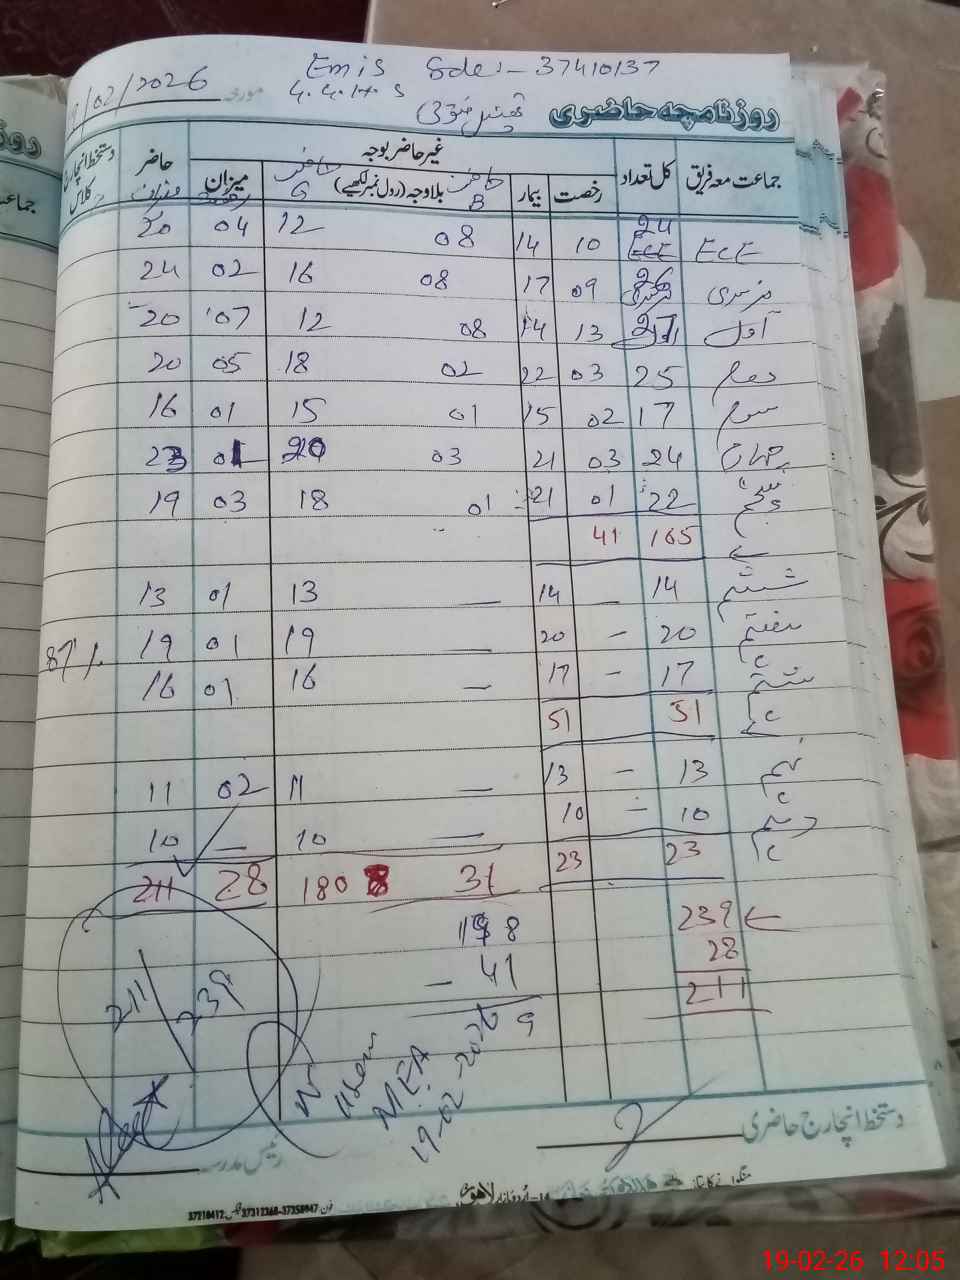 19/02/2026 مورخہ
Emis Code:- 37410137
G.G.H.S
روزنامچہ حاضری
جماعت معہ فریق کل تعداد غیر حاضر بوجہ حاضر دستخط انچارج کلاس
رخصت بیمار B بلاوجہ (رول نمبر لکھیے) G میزان
ECE 24 10 14 08 12 04 20
نرسری 26 09 17 08 16 02 24
اول 27 13 14 08 12 07 20
دوم 25 03 22 02 18 05 20
سوم 17 02 15 01 15 01 16
چہارم 24 03 21 03 20 01 23
پنجم 22 01 21 01 18 03 19
165 41
ششم 14 — 14 — 13 01 13
ہفتم 20 — 20 — 19 01 19 87%
ہشتم 17 — 17 — 16 01 16
51 51
نہم 13 — 13 — 11 02 11
دہم 10 — 10 — 10 — 10
23 23
31 180 28 211
239
28
211
198
- 41
211/239
MEA
19-02-2026
دستخط انچارج حاضری
رئیس مدرسہ
لاہور
فون 37358947-37312368 فیکس 37210412
19-02-26 12:05